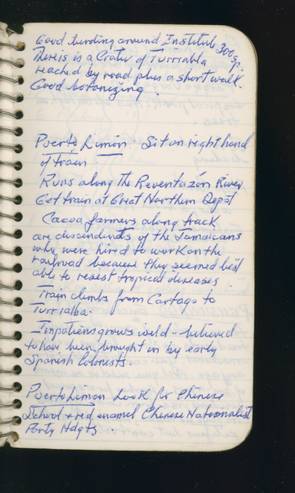 Good birding around Institute 300 sp.
There is a Crater of Turrialba.
reached by road plus a short walk.
Good botanizing.
Puerto Limón. Sit on right hand
of train
Runs along the Reventazón River
Get train at Great Northern Depot
Cacao farmers along track
are descendents of the Jamaicans
who were hired to work on the
railroad because they seemed best
able to resist tropical diseases.
Train climbs from Cartago to
Turrialba.
Impatiens grows wild - believed
to have been brought in by early
Spanish Colonists.
Puerto Limon Look for Chinese
School + red enamel Chinese Nationalist
Party Hdqts.